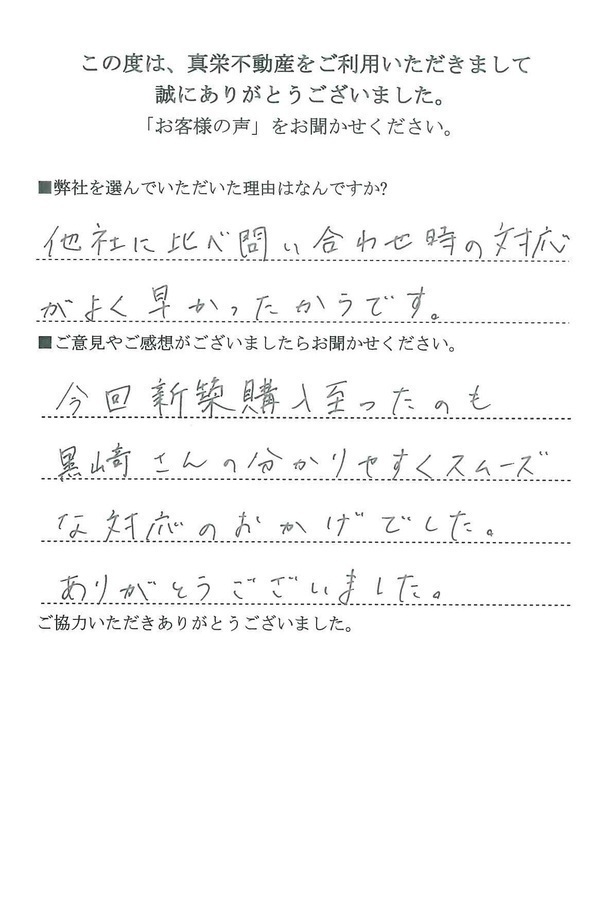 この度は、真栄不動産をご利用いただきまして
誠にありがとうございました。
「お客様の声」をお聞かせください。
■弊社を選んでいただいた理由はなんですか?
他社に比べ問い合わせ時の対応
がよく早かったからです。
■ご意見やご感想がございましたらお聞かせください。
今回新築購入至ったのも
黒崎さんの分かりやすくスムーズ
な対応のおかげでした。
ありがとうございました。
ご協力いただきありがとうございました。